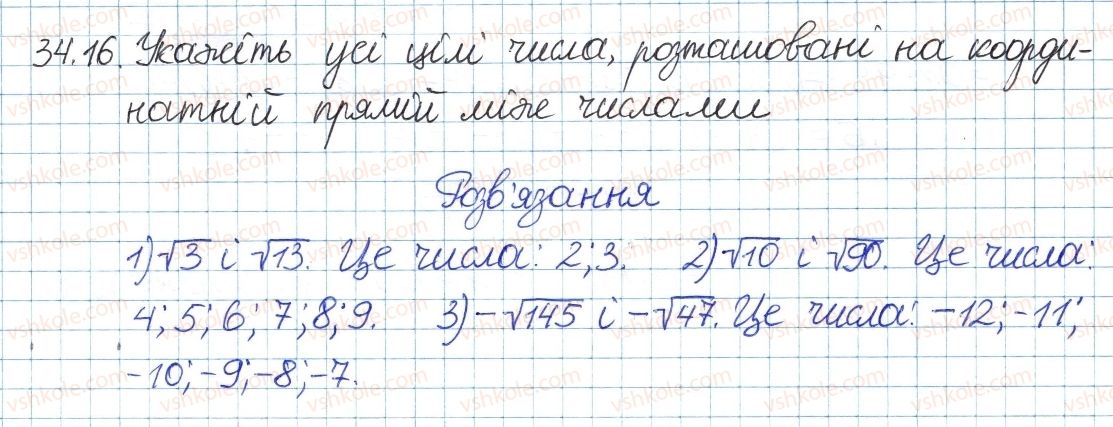 34.16. Укажіть усі цілі числа, розташовані на коорди-
натній прямій між числами
Розв'язання
1) √3 і √13. Це числа: 2; 3. 2) √10 і √90. Це числа:
4; 5; 6; 7; 8; 9. 3) -√145 і -√47. Це числа: -12; -11;
-10; -9; -8; -7.